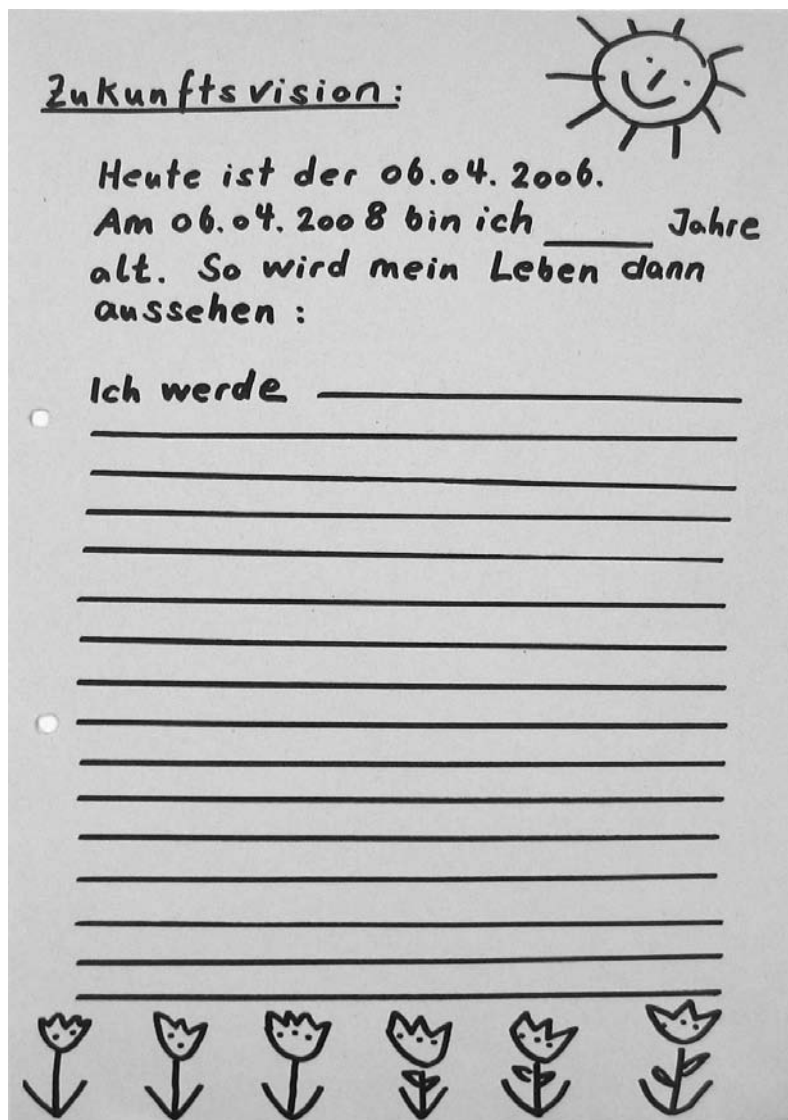 Zukunftsvision:
Heute ist der 06.04.2006.
Am 06.04.2008 bin ich ____ Jahre
alt. So wird mein Leben dann
aussehen:
Ich werde ____